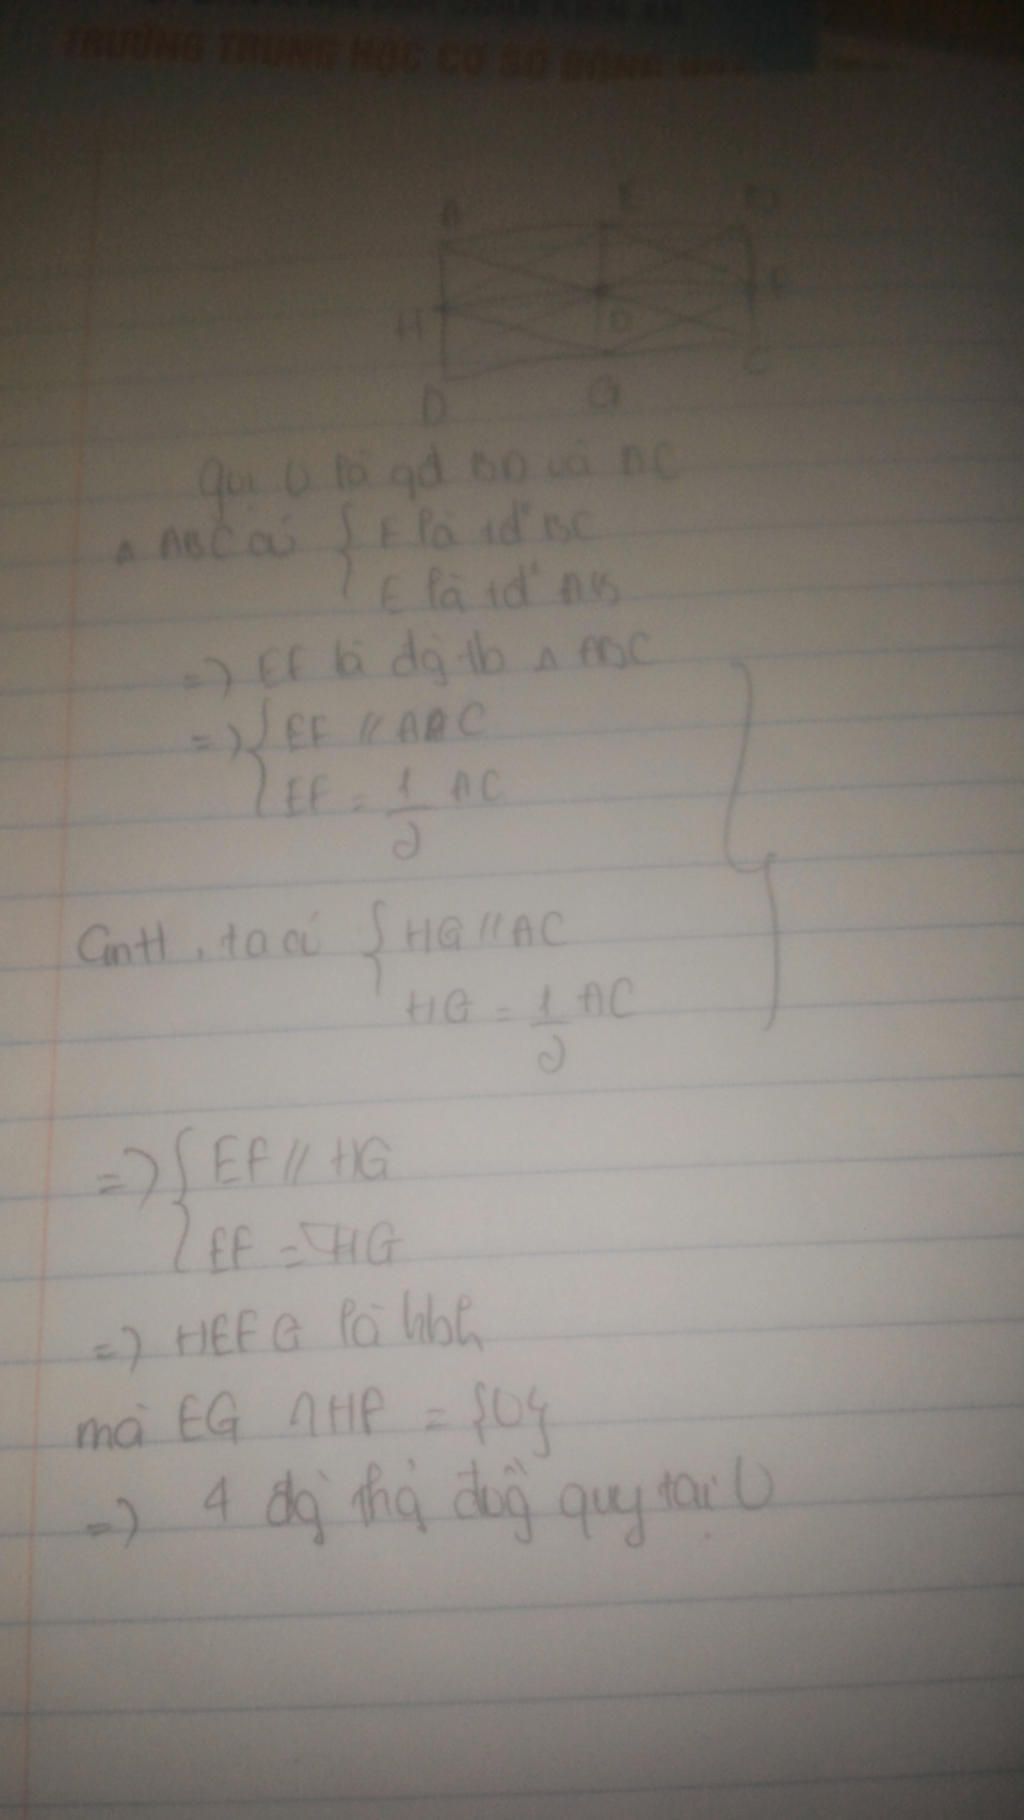 TRƯỜNG TRUNG HỌC CƠ SỞ
A E B
H O F
D G C
Gọi O là gđ BD và AC
Δ ABC có { F là tđ BC
E là tđ AB
=> EF là đg tb Δ ABC
=> { EF // AC
EF = 1/2 AC
Cmtt, ta có { HG // AC
HG = 1/2 AC
=> { EF // HG
EF = HG
=> HEFG là hbh
mà EG ∩ HF = {O}
=> 4 đg thg đồg quy tại O